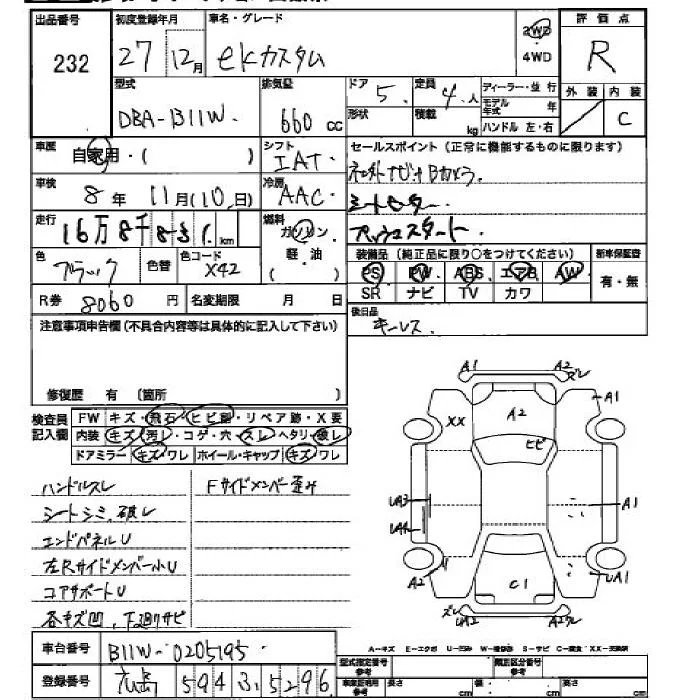 出品番号 初度登録年月 車名・グレード 評価点
232 27 12月 ekカスタム 2WD・4WD R
型式 排気量 ドア 定員 ディーラー・並行 外装 内装
DBA-B11W. 660 cc 5 4 人 モデル年式 年 C
形状 積載 kg ハンドル 左・右
車歴 自家用・( ) シフト IAT セールスポイント(正常に機能するものに限ります)
車検 8年 11月(10日) 冷房 AAC 社外ナビ Bカメラ.
シートヒーター
走行 16万8千831. km 燃料 ガソリン・軽油 ( ) プッシュスタート.
色 ブラック 色替 色コード X42 装備品(純正品に限り○をつけてください) 新車保証書
PS PW ABS エアB AW 有・無
R券 8060円 名変期限 月 日 SR ナビ TV カワ
注意事項申告欄(不具合内容等は具体的に記入して下さい) 後日品
キーレス.
修復歴 有 〔箇所 〕
検査員記入欄 FW キズ・飛石・ヒビ割・リペア跡・X要
内装 キズ・汚レ・コゲ・穴・スレ・ヘタリ・破レ
ドアミラー キズ・ワレ ホイール・キャップ キズ・ワレ
ハンドルスレ Fサイドメンバー歪み
シートシミ、破レ
エンドパネルU
左Rサイドメンバー小U
コアサポートU
各キズ凹、下廻りサビ
A1 A2 ズレ
XX A2 A1
ヒビ
UA3 A1
UA4
A2 C1 UA1
ズレ UA2 A2 ズレ
車台番号 B11W-0205195
A-キズ E-エクボ U-凹み W-補修跡 S-サビ C-腐食 XX-交換済
登録番号 広島 594 3 5296
型式指定番号 参考 類別区分番号 参考
車車証明用 参考 長さ cm 幅 cm 高さ cm